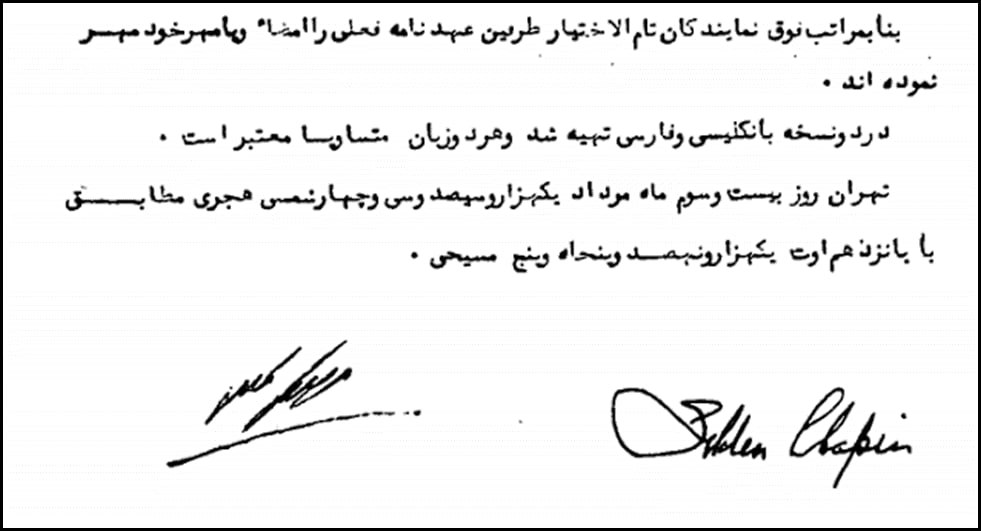 بنابمراتب فوق نمایندگان تام الاختیار طرفین عهدنامه فعلی را امضاء وبامهرخود مهر
نموده اند .
دردونسخه بانگلیسی وفارسی تهیه شد وهردوزبان متساویا معتبر است .
تهران روز بیست وسوم ماه مرداد یکهزاروسیصدوسی وچهارشمسی هجری مطابق
با پانزدهم اوت یکهزارونهصد وپنجاه وپنج مسیحی .
Selden Chapin